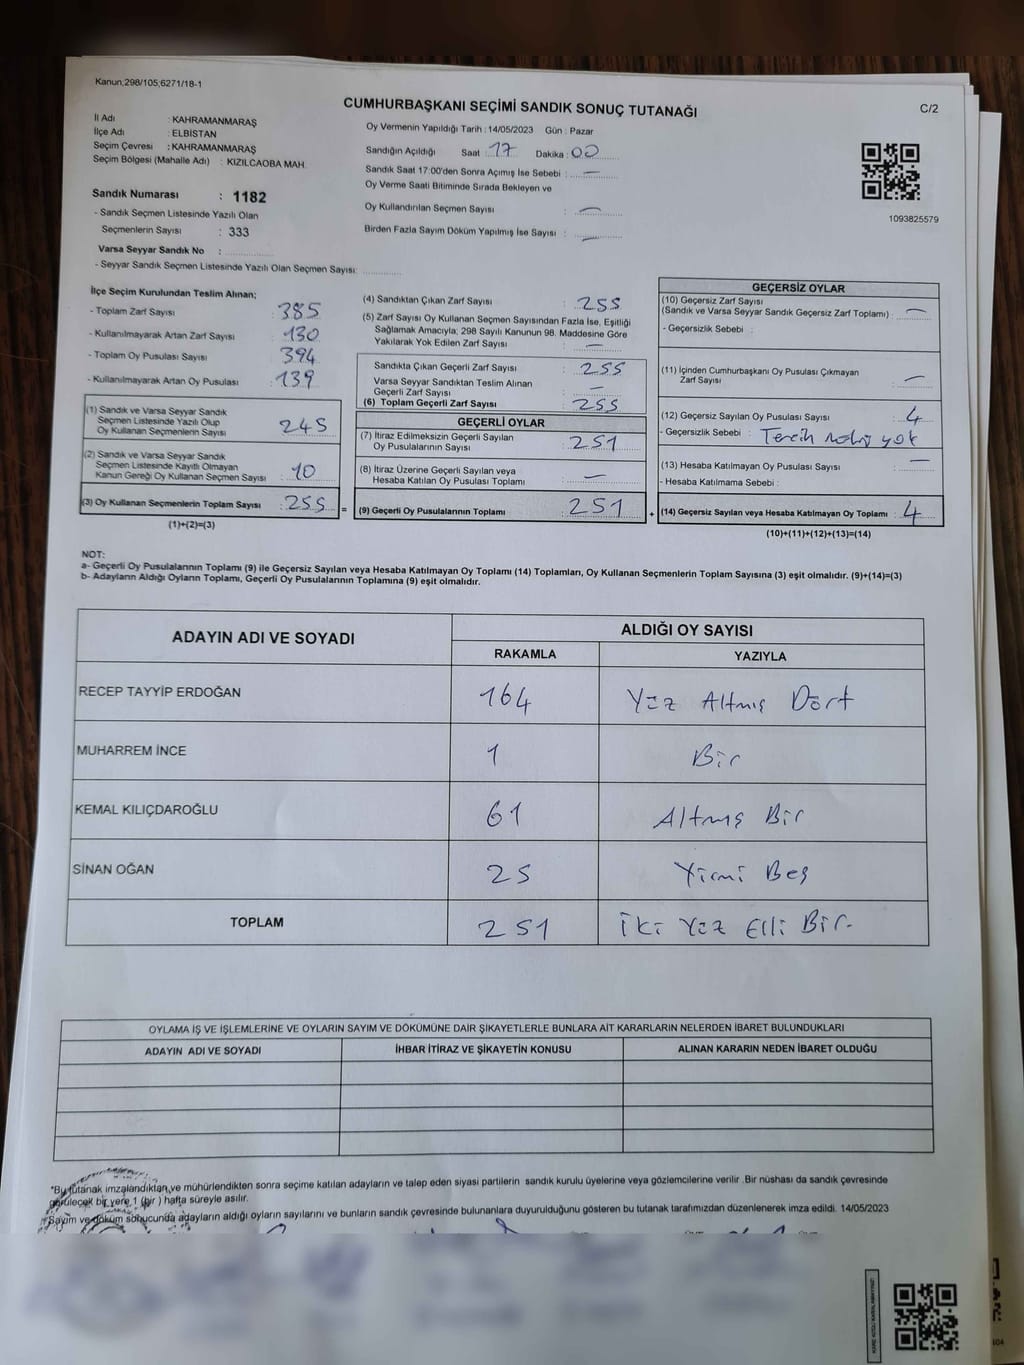 Kanun,298/105,6271/18-1
CUMHURBAŞKANI SEÇİMİ SANDIK SONUÇ TUTANAĞI
C/2
İl Adı : KAHRAMANMARAŞ
İlçe Adı : ELBİSTAN
Seçim Çevresi : KAHRAMANMARAŞ
Seçim Bölgesi (Mahalle Adı) : KIZILCAOBA MAH.
Sandık Numarası : 1182
- Sandık Seçmen Listesinde Yazılı Olan
Seçmenlerin Sayısı : 333
Varsa Seyyar Sandık No :
- Seyyar Sandık Seçmen Listesinde Yazılı Olan Seçmen Sayısı:
Oy Vermenin Yapıldığı Tarih : 14/05/2023 Gün : Pazar
Sandığın Açıldığı Saat : 17 Dakika : 00
Sandık Saat 17:00'den Sonra Açımış İse Sebebi : —
Oy Verme Saati Bitiminde Sırada Bekleyen ve
Oy Kullandırılan Seçmen Sayısı : —
Birden Fazla Sayım Döküm Yapılmış İse Sayısı : —
1093825579
İlçe Seçim Kurulundan Teslim Alınan;
- Toplam Zarf Sayısı : 385
- Kullanılmayarak Artan Zarf Sayısı : 130
- Toplam Oy Pusulası Sayısı : 394
- Kullanılmayarak Artan Oy Pusulası : 139
(1) Sandık ve Varsa Seyyar Sandık
Seçmen Listesinde Yazılı Olup
Oy Kullanan Seçmenlerin Sayısı : 245
(2) Sandık ve Varsa Seyyar Sandık
Seçmen Listesinde Kayıtlı Olmayan
Kanun Gereği Oy Kullanan Seçmen Sayısı : 10
(3) Oy Kullanan Seçmenlerin Toplam Sayısı : 255 =
(1)+(2)=(3)
(4) Sandıktan Çıkan Zarf Sayısı : 255
(5) Zarf Sayısı Oy Kullanan Seçmen Sayısından Fazla İse, Eşitliği
Sağlamak Amacıyla; 298 Sayılı Kanunun 98. Maddesine Göre
Yakılarak Yok Edilen Zarf Sayısı : —
Sandıkta Çıkan Geçerli Zarf Sayısı : 255
Varsa Seyyar Sandıktan Teslim Alınan
Geçerli Zarf Sayısı : —
(6) Toplam Geçerli Zarf Sayısı : 255
GEÇERLİ OYLAR
(7) İtiraz Edilmeksizin Geçerli Sayılan
Oy Pusulalarının Sayısı : 251
(8) İtiraz Üzerine Geçerli Sayılan veya
Hesaba Katılan Oy Pusulası Toplamı : —
(9) Geçerli Oy Pusulalarının Toplamı : 251 +
GEÇERSİZ OYLAR
(10) Geçersiz Zarf Sayısı
(Sandık ve Varsa Seyyar Sandık Geçersiz Zarf Toplamı) : —
- Geçersizlik Sebebi :
(11) İçinden Cumhurbaşkanı Oy Pusulası Çıkmayan
Zarf Sayısı : —
(12) Geçersiz Sayılan Oy Pusulası Sayısı : 4
- Geçersizlik Sebebi : Tercih mührü yok
(13) Hesaba Katılmayan Oy Pusulası Sayısı : —
- Hesaba Katılmama Sebebi :
(14) Geçersiz Sayılan veya Hesaba Katılmayan Oy Toplamı : 4
(10)+(11)+(12)+(13)=(14)
NOT:
a- Geçerli Oy Pusulalarının Toplamı (9) ile Geçersiz Sayılan veya Hesaba Katılmayan Oy Toplamı (14) Toplamları, Oy Kullanan Seçmenlerin Toplam Sayısına (3) eşit olmalıdır. (9)+(14)=(3)
b- Adayların Aldığı Oyların Toplamı, Geçerli Oy Pusulalarının Toplamına (9) eşit olmalıdır.
ADAYIN ADI VE SOYADI
ALDIĞI OY SAYISI
RAKAMLA YAZIYLA
RECEP TAYYİP ERDOĞAN 164 Yüz Altmış Dört
MUHARREM İNCE 1 Bir
KEMAL KILIÇDAROĞLU 61 Altmış Bir
SİNAN OĞAN 25 Yirmi Beş
TOPLAM 251 İki Yüz Elli Bir.
OYLAMA İŞ VE İŞLEMLERİNE VE OYLARIN SAYIM VE DÖKÜMÜNE DAİR ŞİKAYETLERLE BUNLARA AİT KARARLARIN NELERDEN İBARET BULUNDUKLARI
ADAYIN ADI VE SOYADI İHBAR İTİRAZ VE ŞİKAYETİN KONUSU ALINAN KARARIN NEDEN İBARET OLDUĞU
*Bu tutanak imzalandıktan ve mühürlendikten sonra seçime katılan adayların ve talep eden siyasi partilerin sandık kurulu üyelerine veya gözlemcilerine verilir .Bir nüshası da sandık çevresinde
görülecek bir yere 1 (bir ) hafta süreyle asılır.
*Sayım ve döküm sonucunda adayların aldığı oyların sayılarını ve bunların sandık çevresinde bulunanlara duyurulduğunu gösteren bu tutanak tarafımızdan düzenlenerek imza edildi. 14/05/2023